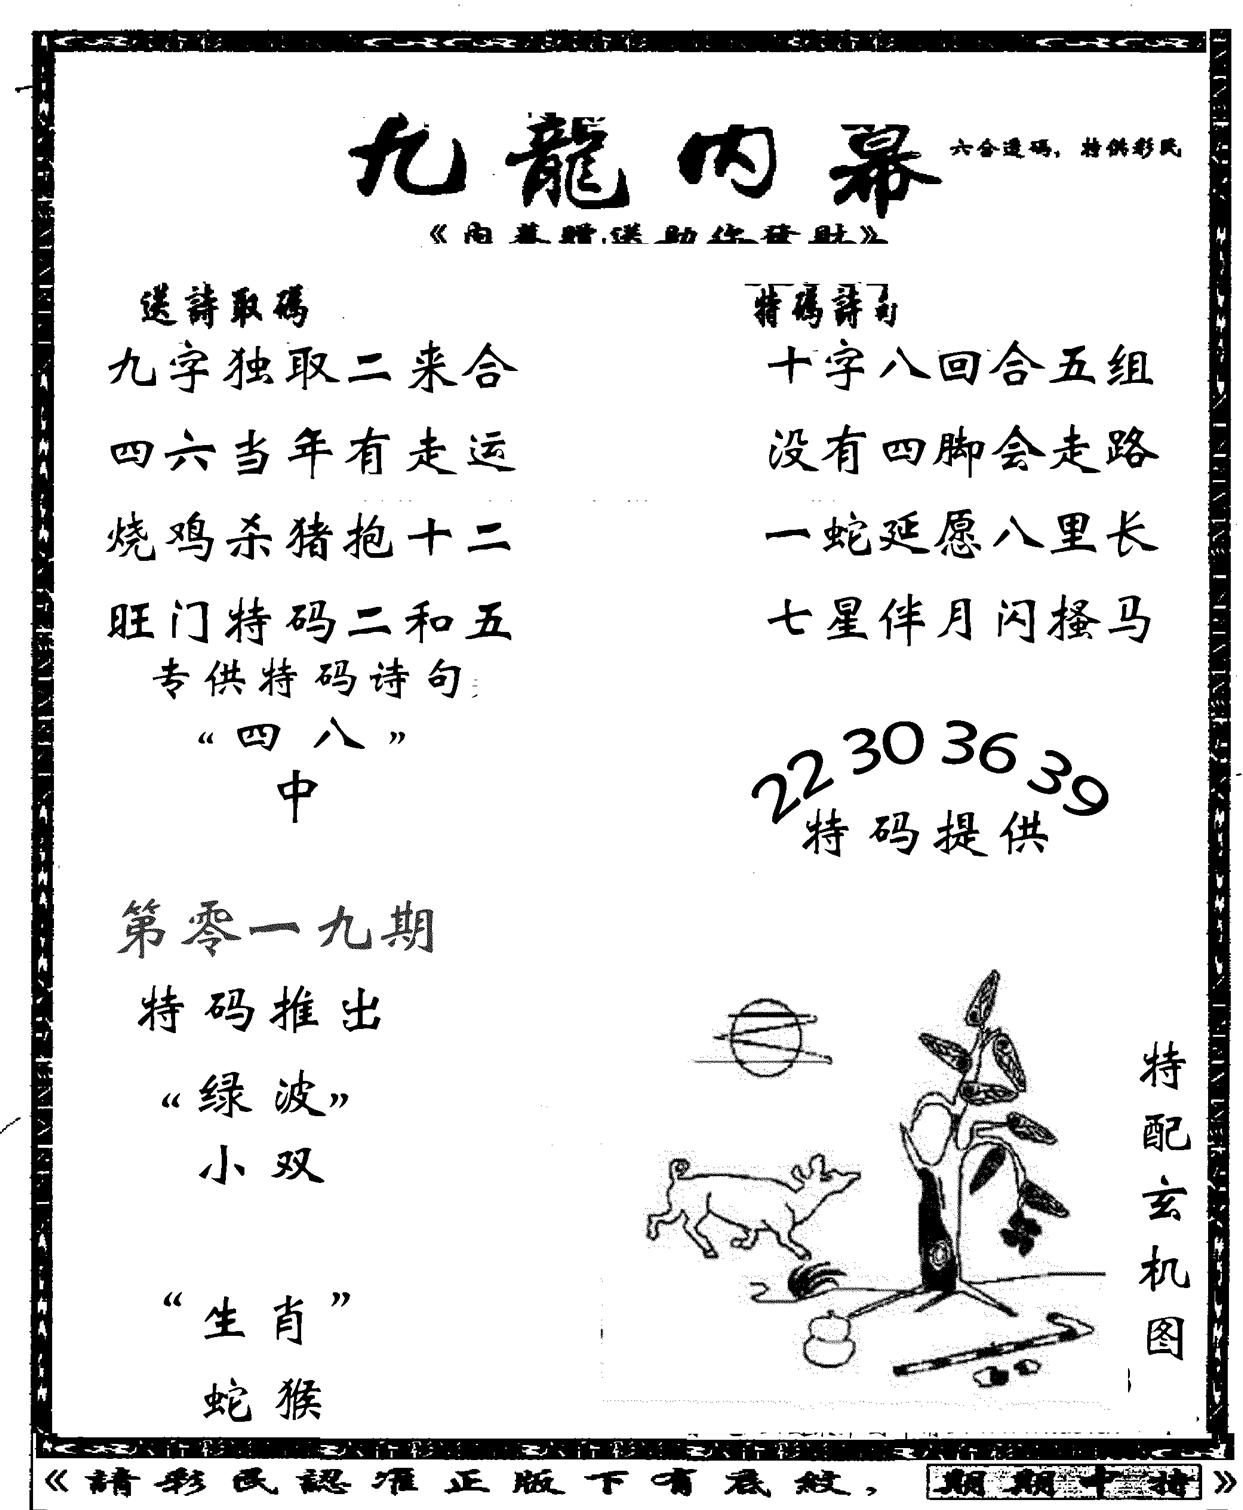 九龍内幕
六合透码，特供彩民
《内幕贈送助你發財》
送詩取碼
九字独取二来合
四六当年有走运
烧鸡杀猪抱十二
旺门特码二和五
专供特码诗句
“四八”
中
特碼詩句
十字八回合五组
没有四脚会走路
一蛇延愿八里长
七星伴月闪搔马
22 30 36 39
特码提供
第零一九期
特码推出
“绿波”
小双
“生肖”
蛇猴
特配玄机图
《請彩民認准正版下有底紋，期期中特》